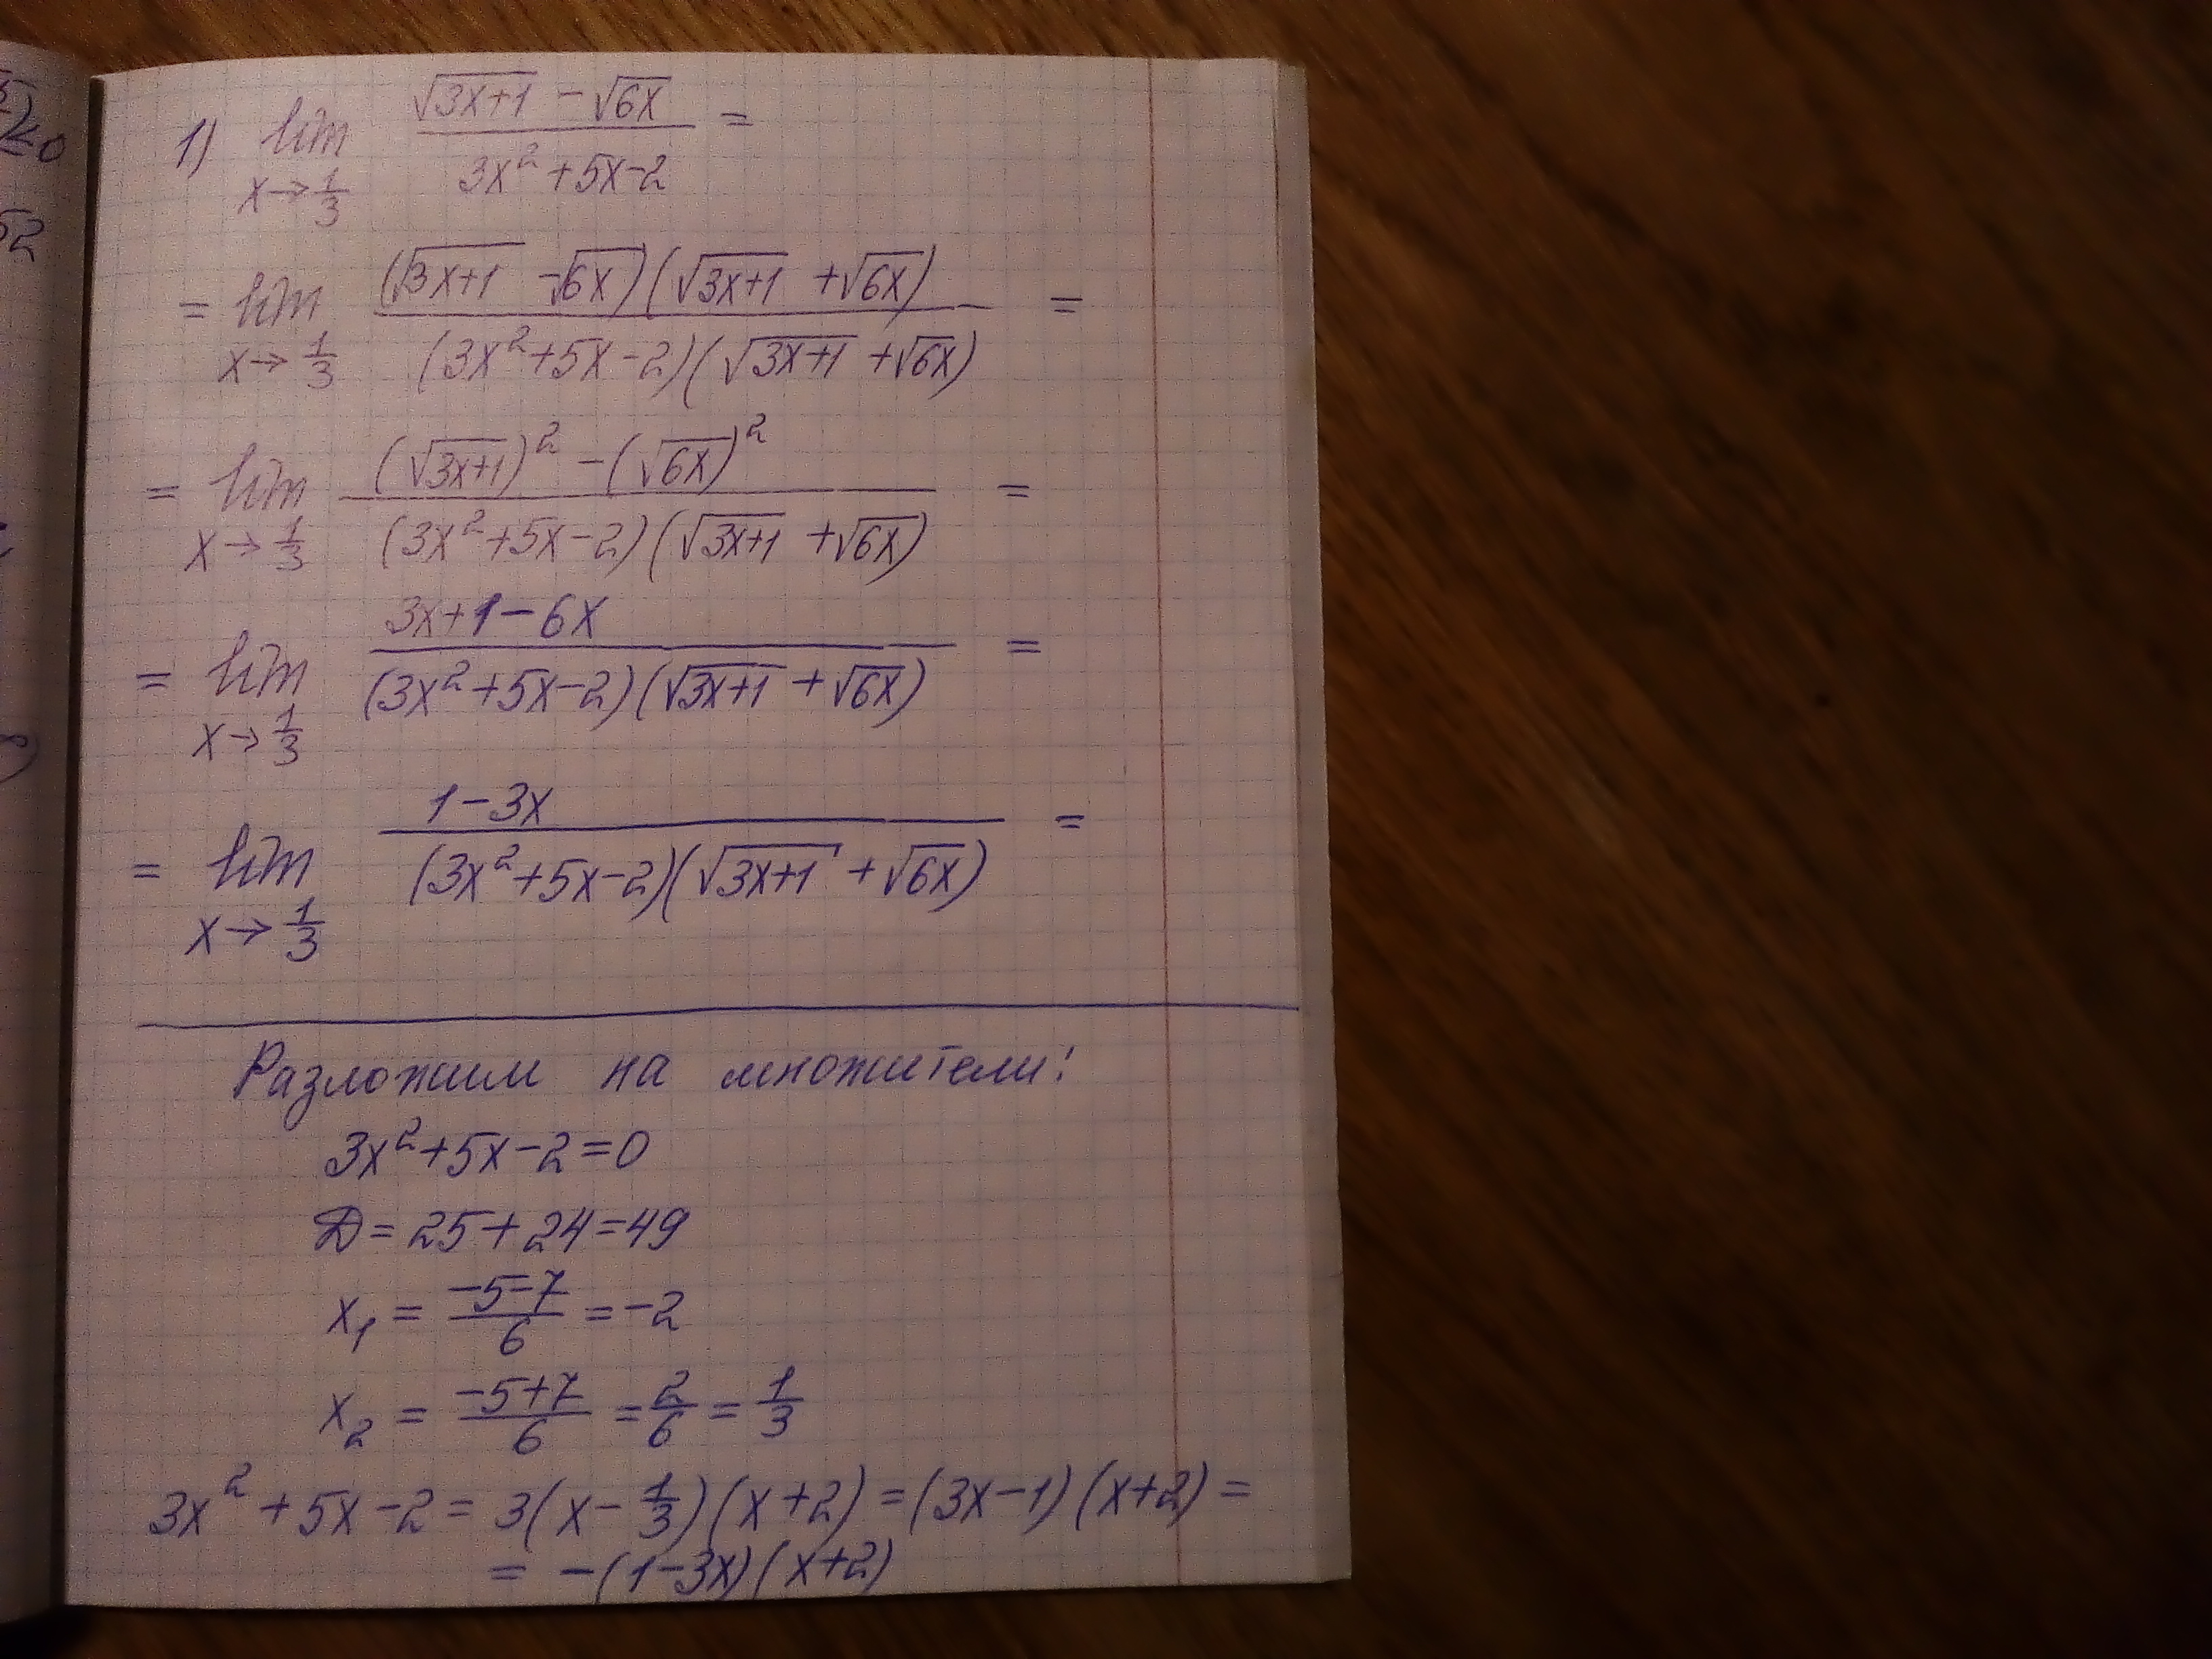 1) lim x→1/3 (√(3x+1) - √(6x)) / (3x² + 5x - 2) =
= lim x→1/3 ((√(3x+1) - √(6x))(√(3x+1) + √(6x))) / ((3x² + 5x - 2)(√(3x+1) + √(6x))) =
= lim x→1/3 ((√(3x+1))² - (√(6x))²) / ((3x² + 5x - 2)(√(3x+1) + √(6x))) =
= lim x→1/3 (3x + 1 - 6x) / ((3x² + 5x - 2)(√(3x+1) + √(6x))) =
= lim x→1/3 (1 - 3x) / ((3x² + 5x - 2)(√(3x+1) + √(6x))) =
Разложим на множители:
3x² + 5x - 2 = 0
D = 25 + 24 = 49
x₁ = (-5-7)/6 = -2
x₂ = (-5+7)/6 = 2/6 = 1/3
3x² + 5x - 2 = 3(x - 1/3)(x + 2) = (3x - 1)(x + 2) =
= -(1 - 3x)(x + 2)